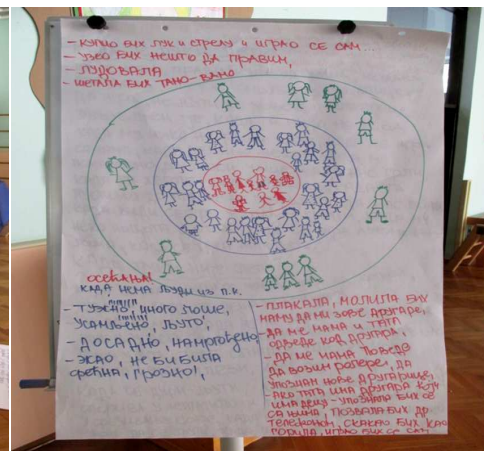 - КУПИО БИХ ЛУК И СТРЕЛУ И ИГРАО СЕ САМ...
- УЗЕО БИХ НЕШТО ДА ПРАВИМ,
- ЛУДОВАЛА
- ШЕТАЛА БИХ ТАМО-ВАМО
ОСЕЋАЊА!
КАДА НЕМА ЉУДИ ИЗ П.К.
- ТУЖНО, МНОГО ЛОШЕ,
УСАМЉЕНО, ЉУТО,
- ДОСАДНО, НАМРГОЂЕНО
- ЖАО, НЕ БИ БИЛА
СРЕЋНА, ГРОЗНО!,
- ПЛАКАЛА, МОЛИЛА БИХ
МАМУ ДА МИ ЗОВЕ ДРУГАРЕ,
- ДА МЕ МАМА И ТАТА
ОДВЕДЕ КОД ДРУГАРА,
- ДА МЕ МАМА ПОВЕДЕ
ДА ВОЗИМ РОЛЕРЕ, ДА
УПОЗНАМ НОВЕ ДРУГАРИЦЕ,
- АКО ТАТА ИМА ДРУГАРА КОЈИ
ИМА ДЕЦУ - УПОЗНАЛА БИХ СЕ
СА ЊИМА, ПОЗВАЛА БИХ
ТЕЛЕФОНОМ, СКАКАО БИХ КАО
ГОРИЛА, ИГРАО БИХ СЕ САМ